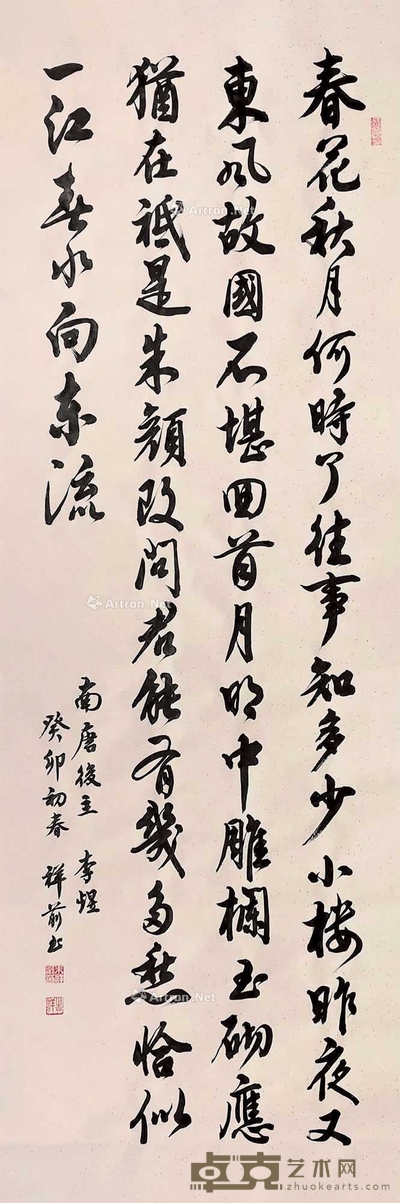 春花秋月何時了往事知多少小楼昨夜又
東风故國不堪回首月明中雕欄玉砌應
猶在祗是朱顔改問君能有幾多愁恰似
一江春水向东流
南唐後主 李煜
癸卯初春 祥前书
Artron.Net
Artron.Net
Artron.Net
Artron.Net
卓克艺术网
zhuokearts.com